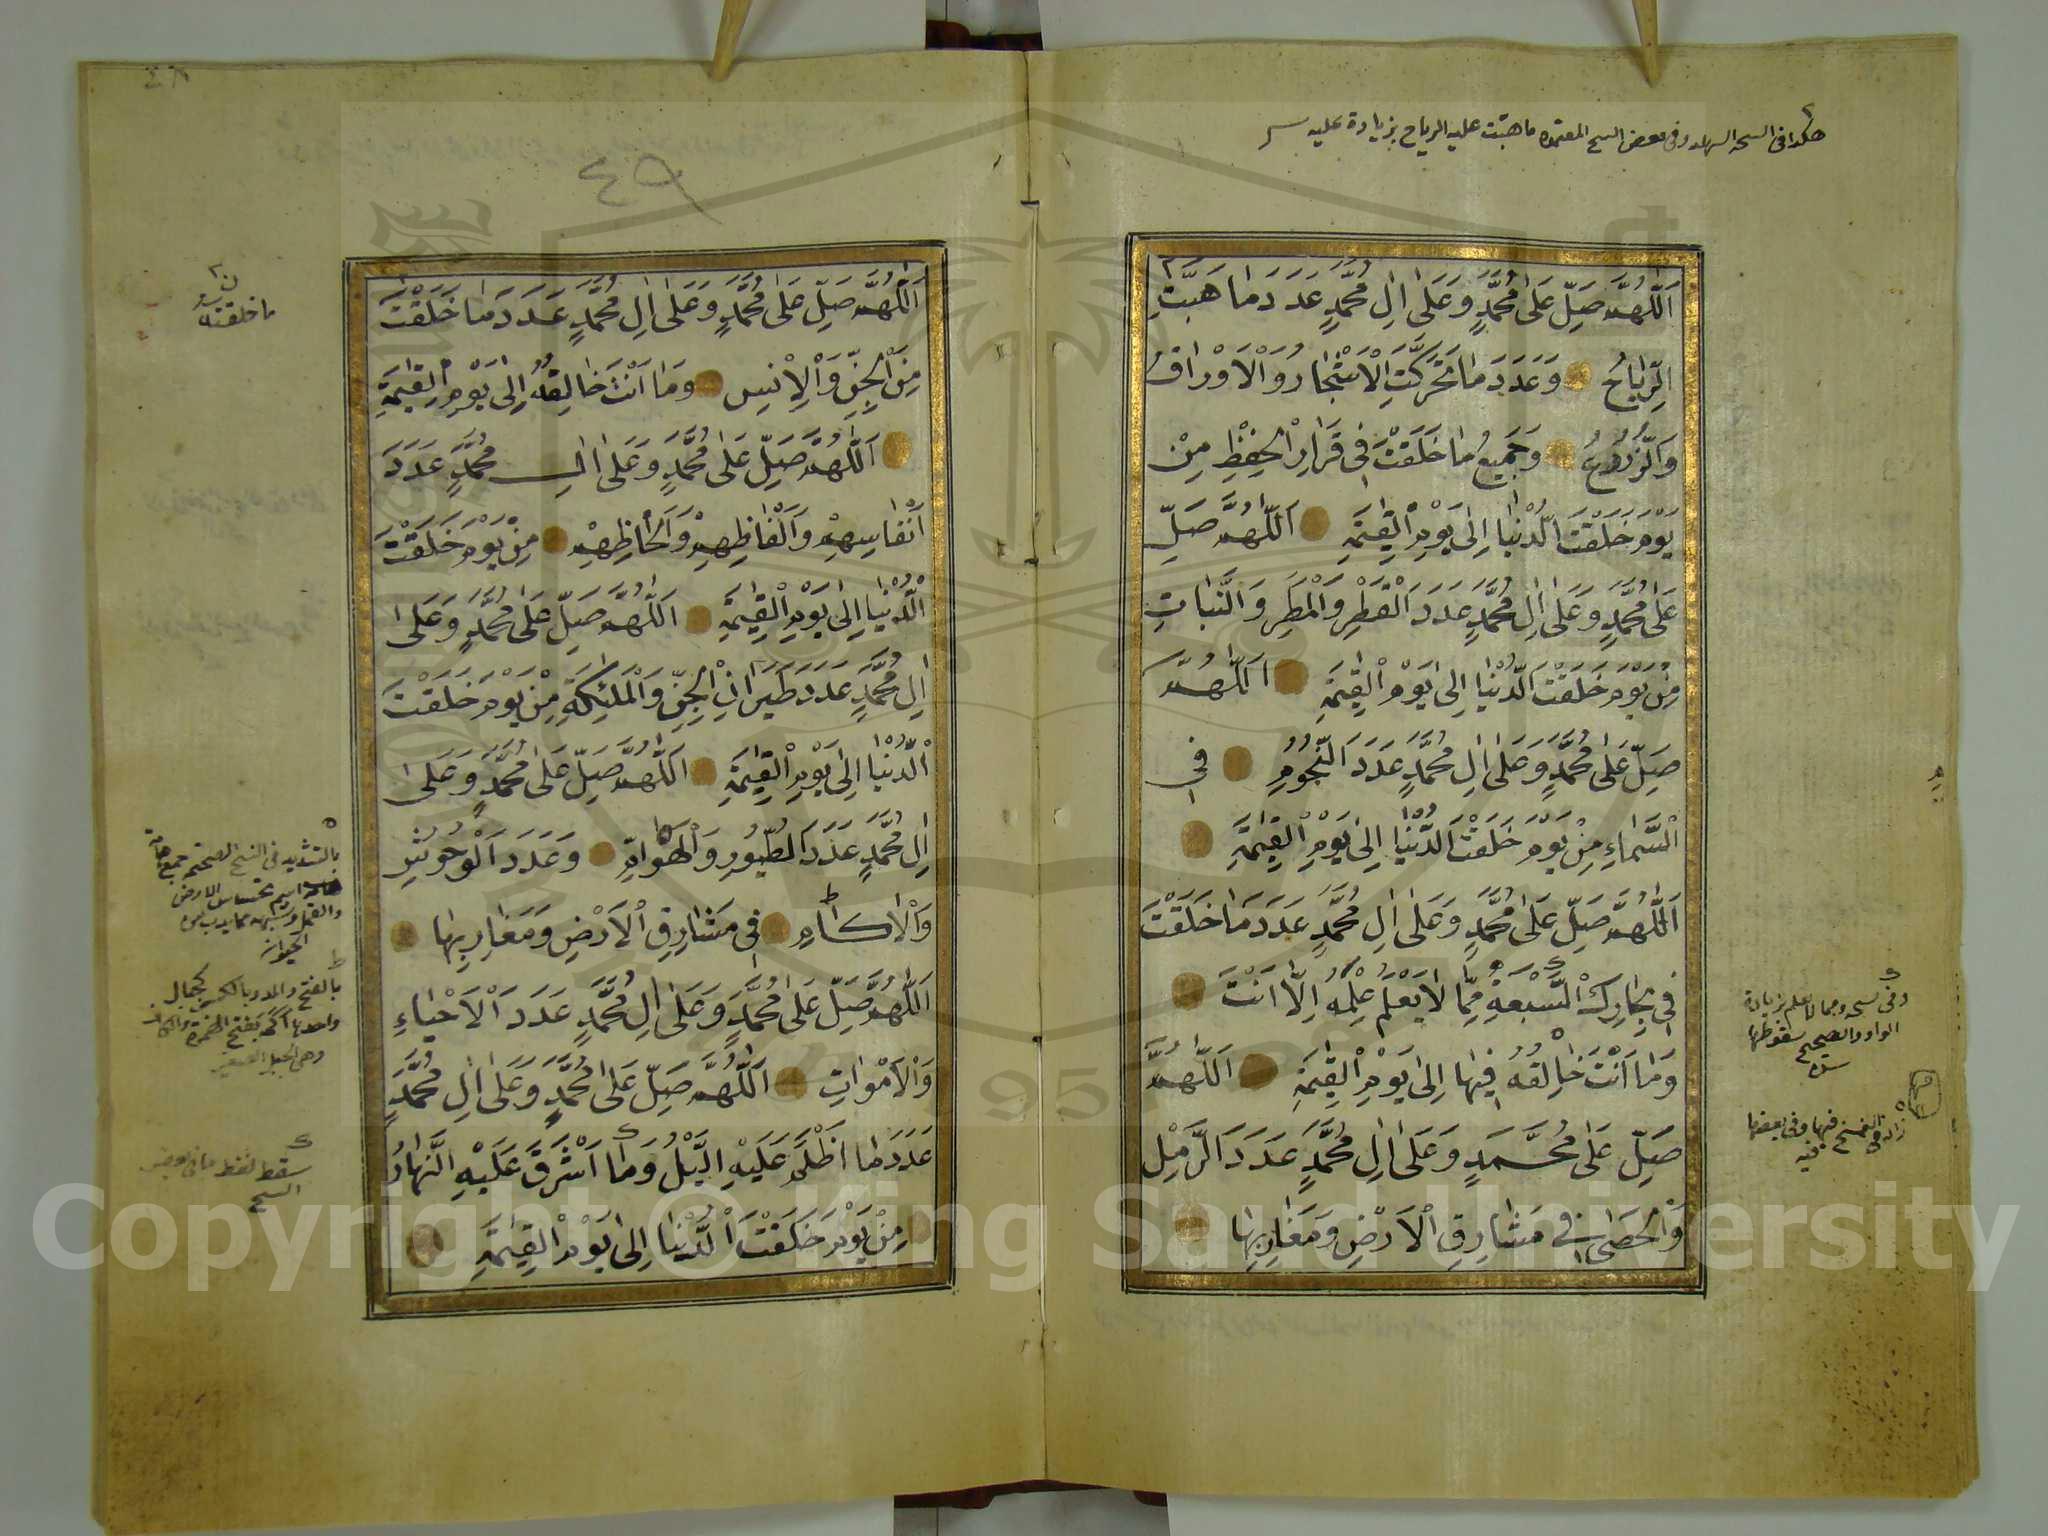 هكذا فى النسخة السهلية وفى بعض النسخ المعتمدة ما هبت عليه الرياح بزيادة عليه
اَللّٰهُمَّ صَلِّ عَلٰى مُحَمَّدٍ وَعَلٰى اٰلِ مُحَمَّدٍ عَدَدَ مَا هَبَّتِ
الرِّيَاحُ وَعَدَدَ مَا تَحَرَّكَتِ الْاَشْجَارُ وَالْاَوْرَاقُ
وَالزُّرُوعُ وَجَمِيعُ مَا خَلَقْتَ فِى قَرَارِ الْحِفْظِ مِنْ
يَوْمَ خَلَقْتَ الدُّنْيَا اِلٰى يَوْمِ الْقِيٰمَةِ اَللّٰهُمَّ صَلِّ
عَلٰى مُحَمَّدٍ وَعَلٰى اٰلِ مُحَمَّدٍ عَدَدَ الْقَطْرِ وَالْمَطَرِ وَالنَّبَاتِ
مِنْ يَوْمَ خَلَقْتَ الدُّنْيَا اِلٰى يَوْمِ الْقِيٰمَةِ اَللّٰهُمَّ
صَلِّ عَلٰى مُحَمَّدٍ وَعَلٰى اٰلِ مُحَمَّدٍ عَدَدَ النُّجُومِ فِى
السَّمَاءِ مِنْ يَوْمَ خَلَقْتَ الدُّنْيَا اِلٰى يَوْمِ الْقِيٰمَةِ
اَللّٰهُمَّ صَلِّ عَلٰى مُحَمَّدٍ وَعَلٰى اٰلِ مُحَمَّدٍ عَدَدَ مَا خَلَقْتَ
فِى بِحَارِكَ السَّبْعَةِ مِمَّا لَا يَعْلَمُ عِلْمَهُ اِلَّا اَنْتَ
وَمَا اَنْتَ خَالِقُهُ فِيهَا اِلٰى يَوْمِ الْقِيٰمَةِ اَللّٰهُمَّ
صَلِّ عَلٰى مُحَمَّدٍ وَعَلٰى اٰلِ مُحَمَّدٍ عَدَدَ الرَّمْلِ
وَالْحَصٰى فِى مَشَارِقِ الْاَرْضِ وَمَغَارِبِهَا
وفى نسخة ومما لا علم بزيادة
الواو والصحيح سقوطها
زاد فى النسخ فيها وفى بعضها
فيه
٤٩
اَللّٰهُمَّ صَلِّ عَلٰى مُحَمَّدٍ وَعَلٰى اٰلِ مُحَمَّدٍ عَدَدَ مَا خَلَقْتَ
مِنَ الْجِنِّ وَالْاِنْسِ وَمَا اَنْتَ خَالِقُهُ اِلٰى يَوْمِ الْقِيٰمَةِ
اَللّٰهُمَّ صَلِّ عَلٰى مُحَمَّدٍ وَعَلٰى اٰلِ مُحَمَّدٍ عَدَدَ
اَنْفَاسِهِمْ وَاَلْفَاظِهِمْ وَاَلْحَاظِهِمْ مِنْ يَوْمَ خَلَقْتَ
الدُّنْيَا اِلٰى يَوْمِ الْقِيٰمَةِ اَللّٰهُمَّ صَلِّ عَلٰى مُحَمَّدٍ وَعَلٰى
اٰلِ مُحَمَّدٍ عَدَدَ طَيَرَانِ الْجِنِّ وَالْمَلٰئِكَةِ مِنْ يَوْمَ خَلَقْتَ
الدُّنْيَا اِلٰى يَوْمِ الْقِيٰمَةِ اَللّٰهُمَّ صَلِّ عَلٰى مُحَمَّدٍ وَعَلٰى
اٰلِ مُحَمَّدٍ عَدَدَ الطُّيُورِ وَالْهَوَامِّ وَعَدَدَ الْوُحُوشِ
وَالْاٰكَامِ فِى مَشَارِقِ الْاَرْضِ وَمَغَارِبِهَا
اَللّٰهُمَّ صَلِّ عَلٰى مُحَمَّدٍ وَعَلٰى اٰلِ مُحَمَّدٍ عَدَدَ الْاَحْيَاءِ
وَالْاَمْوَاتِ اَللّٰهُمَّ صَلِّ عَلٰى مُحَمَّدٍ وَعَلٰى اٰلِ مُحَمَّدٍ
عَدَدَ مَا اَظْلَمَ عَلَيْهِ الَّيْلُ وَمَا اَشْرَقَ عَلَيْهِ النَّهَارُ
مِنْ يَوْمَ خَلَقْتَ الدُّنْيَا اِلٰى يَوْمِ الْقِيٰمَةِ
ما خلقته
بالتشديد فى النسخ الصحيحة جمع هامة
الارض
والقمل وشبهه مما يدب من
الحيوان
بالفتح والمد وبالكسر كجبال
واحدها اكمة بفتح الهمزة والكاف
وهى الجبل الصغير
سقط لفظ ما فى بعض
النسخ
Copyright © King Saud University
1957